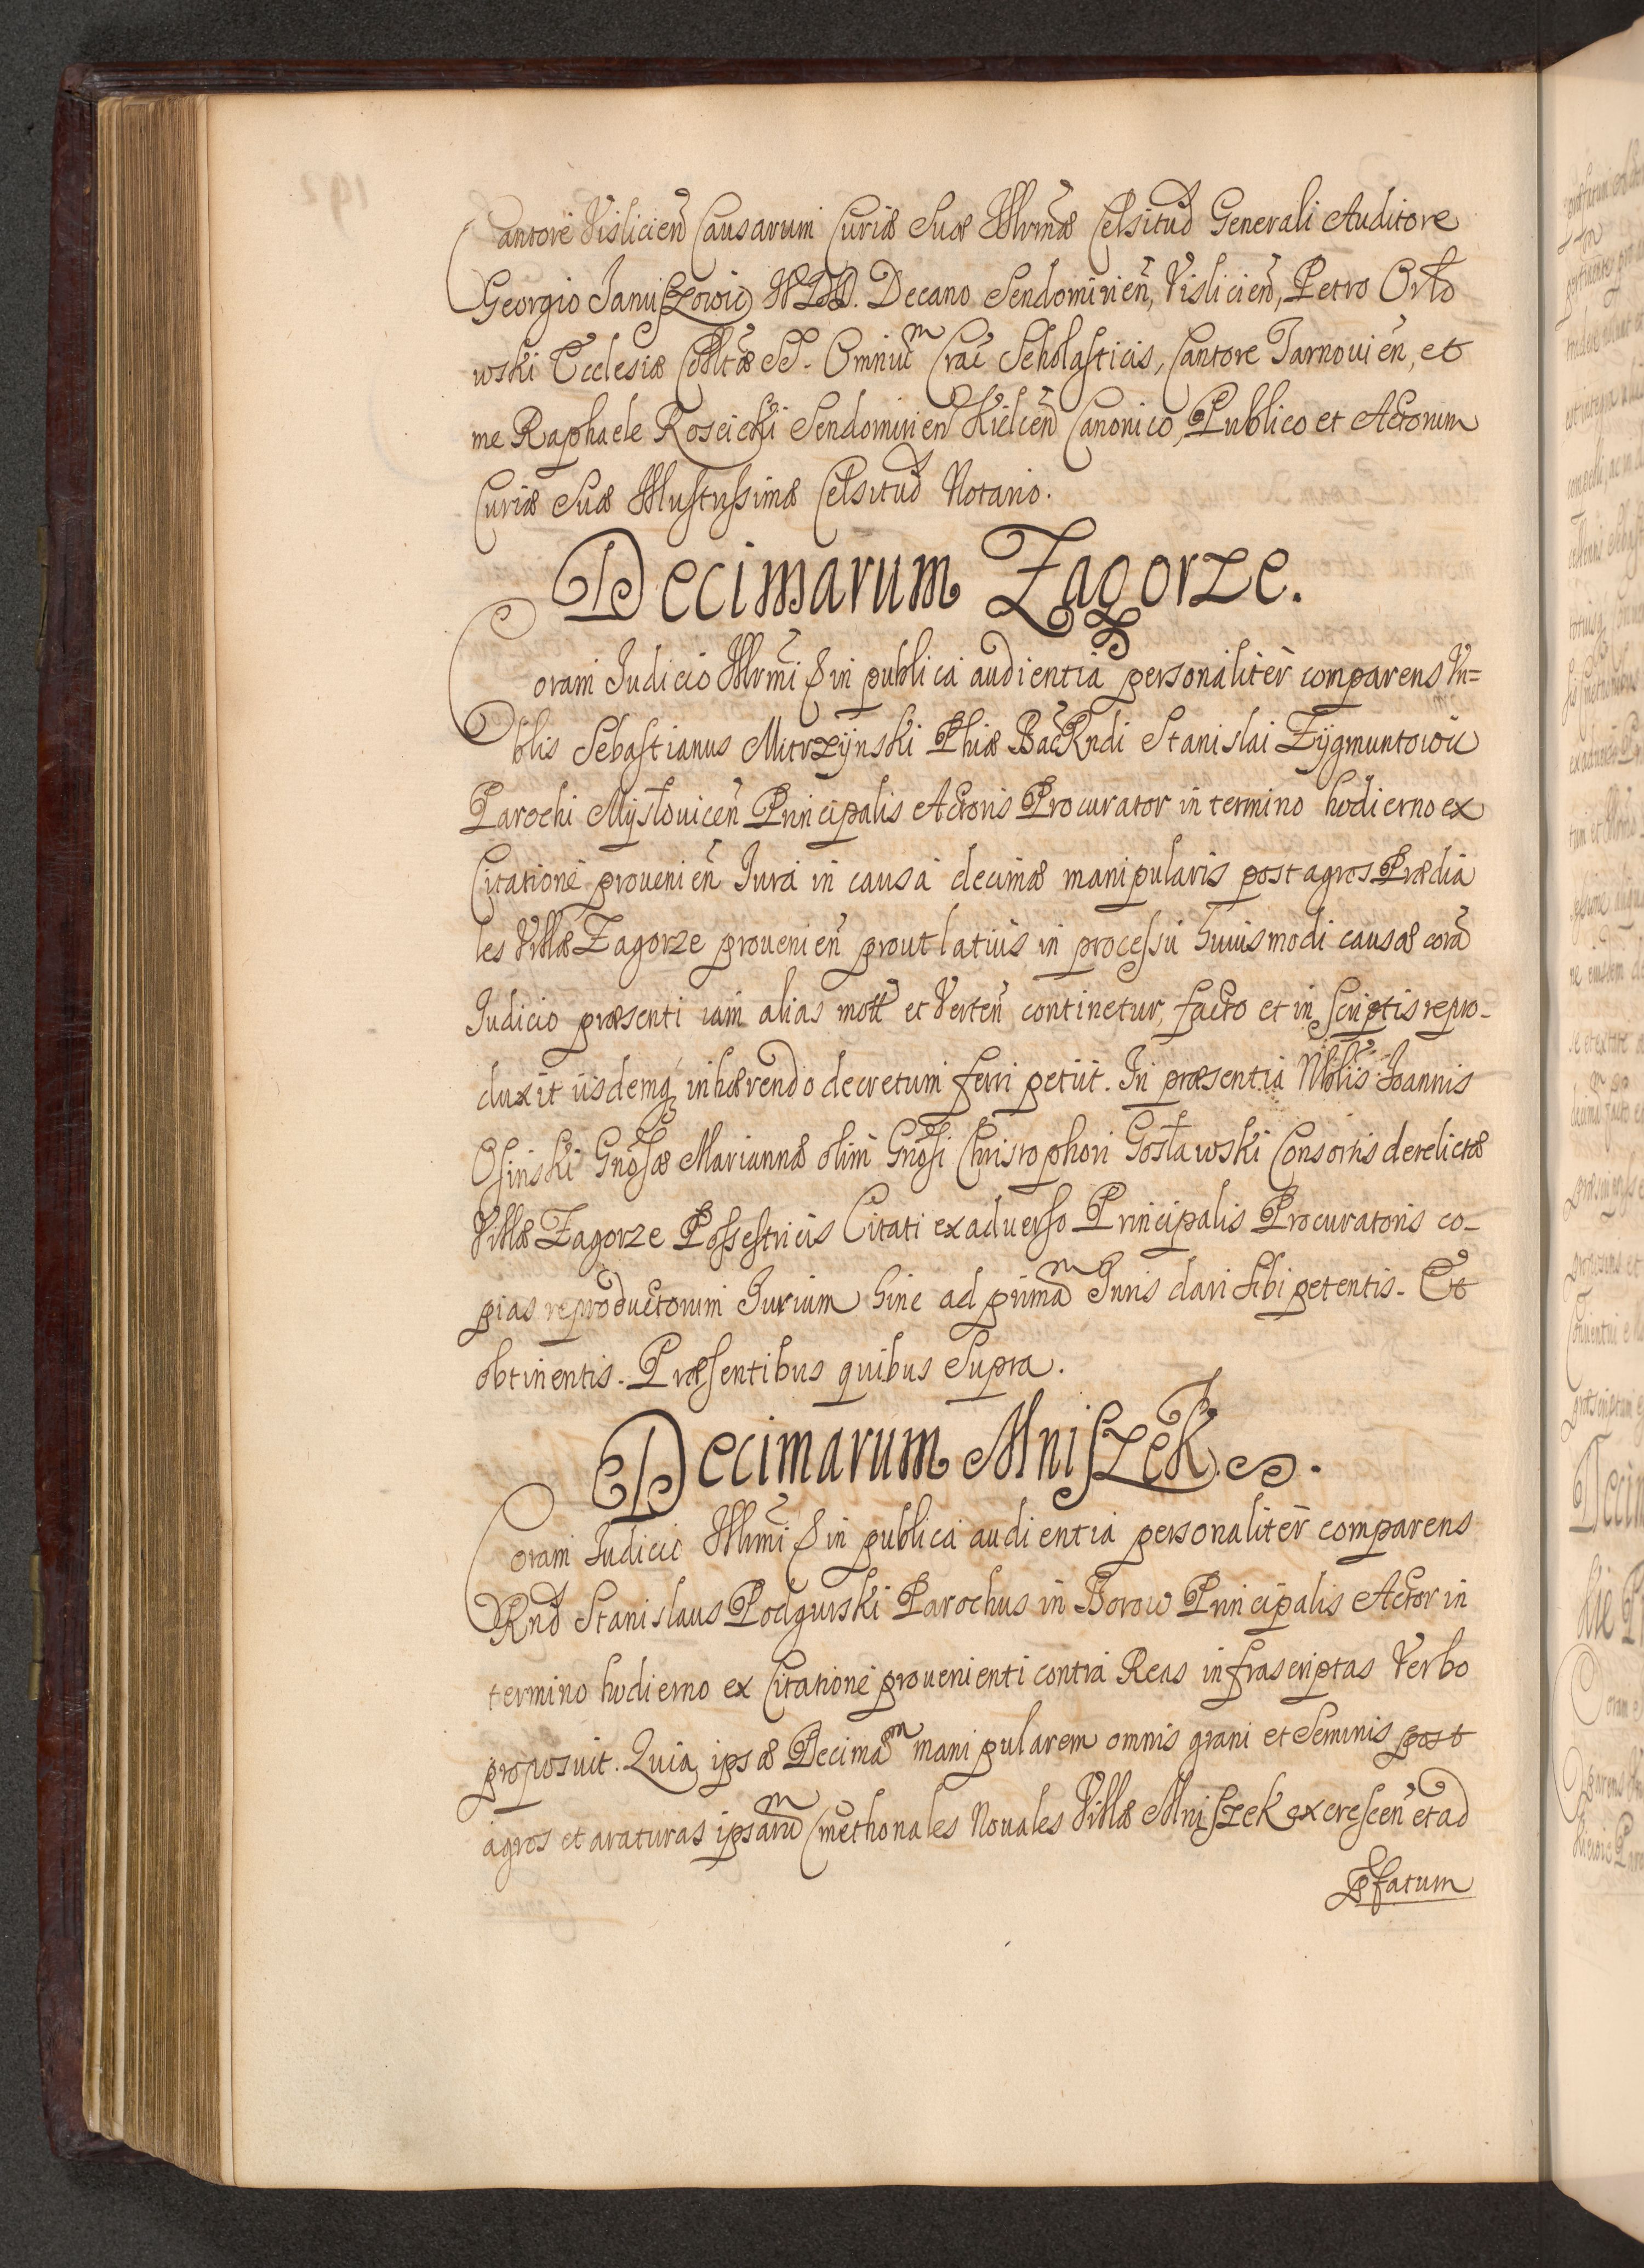 Cantore Vislicien̄ Causarum Curiæ Suæ Illrmæ Celsitud Generali Auditore
Georgio Januszowic Decano Sendomirien̄, Vislicien̄, Petro Orło
wski Ecclesiæ Colltæ SS. Omniūm Crac̄ Scholasticis, Cantore Tarnouien̄, et
me Raphaele Roscicki Sendomirien̄ Kielcen̄ Canonico, Publico et Actorum
Curiæ Suæ Illustrissimæ Celsitud Notario.
Decimarum Zagorze.
Coram Judicio Illrmi & in publica audientia personaliter comparens
Sebastianus Mitrzÿnski Phiæ Bac̄ Rndi Stanislai Zÿgmuntowic
Parochi Mÿsłouicen̄ Principalis Actoris Procurator in termino hodierno ex
Citatione prouenien̄ Jura in causa decimæ manipularis post agros Prædia
les Villæ Zagorze prouenien̄ prout latius in processu huiusmodi causæ corā
Judicio præsenti iam alias mott et Verten̄ continetur, facto et in scriptis repro-
duxit iisdemq inhærendo decretum ferri petiit. In præsentia Nobilis Joannis
Osinski Gnosæ Mariannæ olim Gnosi Christophori Gosławski Consortis derelictæ
Villæ Zagorze Possestricis Citati ex aduerso Principalis Procuratoris co-
pias reproductorum Jurium hinc ad primām Juris dari sibi petentis. Et
obtinentis. Præsentibus quibus Supra.
Decimarum Mniszek.
Coram Judicio Illrmi & in publica audientia personaliter comparens
Rnd Stanislaus Podgurski Parochus in Borow Principalis Actor in
termino hodierno ex Citatione prouenienti contra Reas infrascriptas Verbo
proposuit. Quia ipsæ Decimām manipularem omnis grani et Seminis post
agros et araturas ipsarūm Cmethonales Nouales Villæ Mniszek excrescen̄ et ad
Pfatum